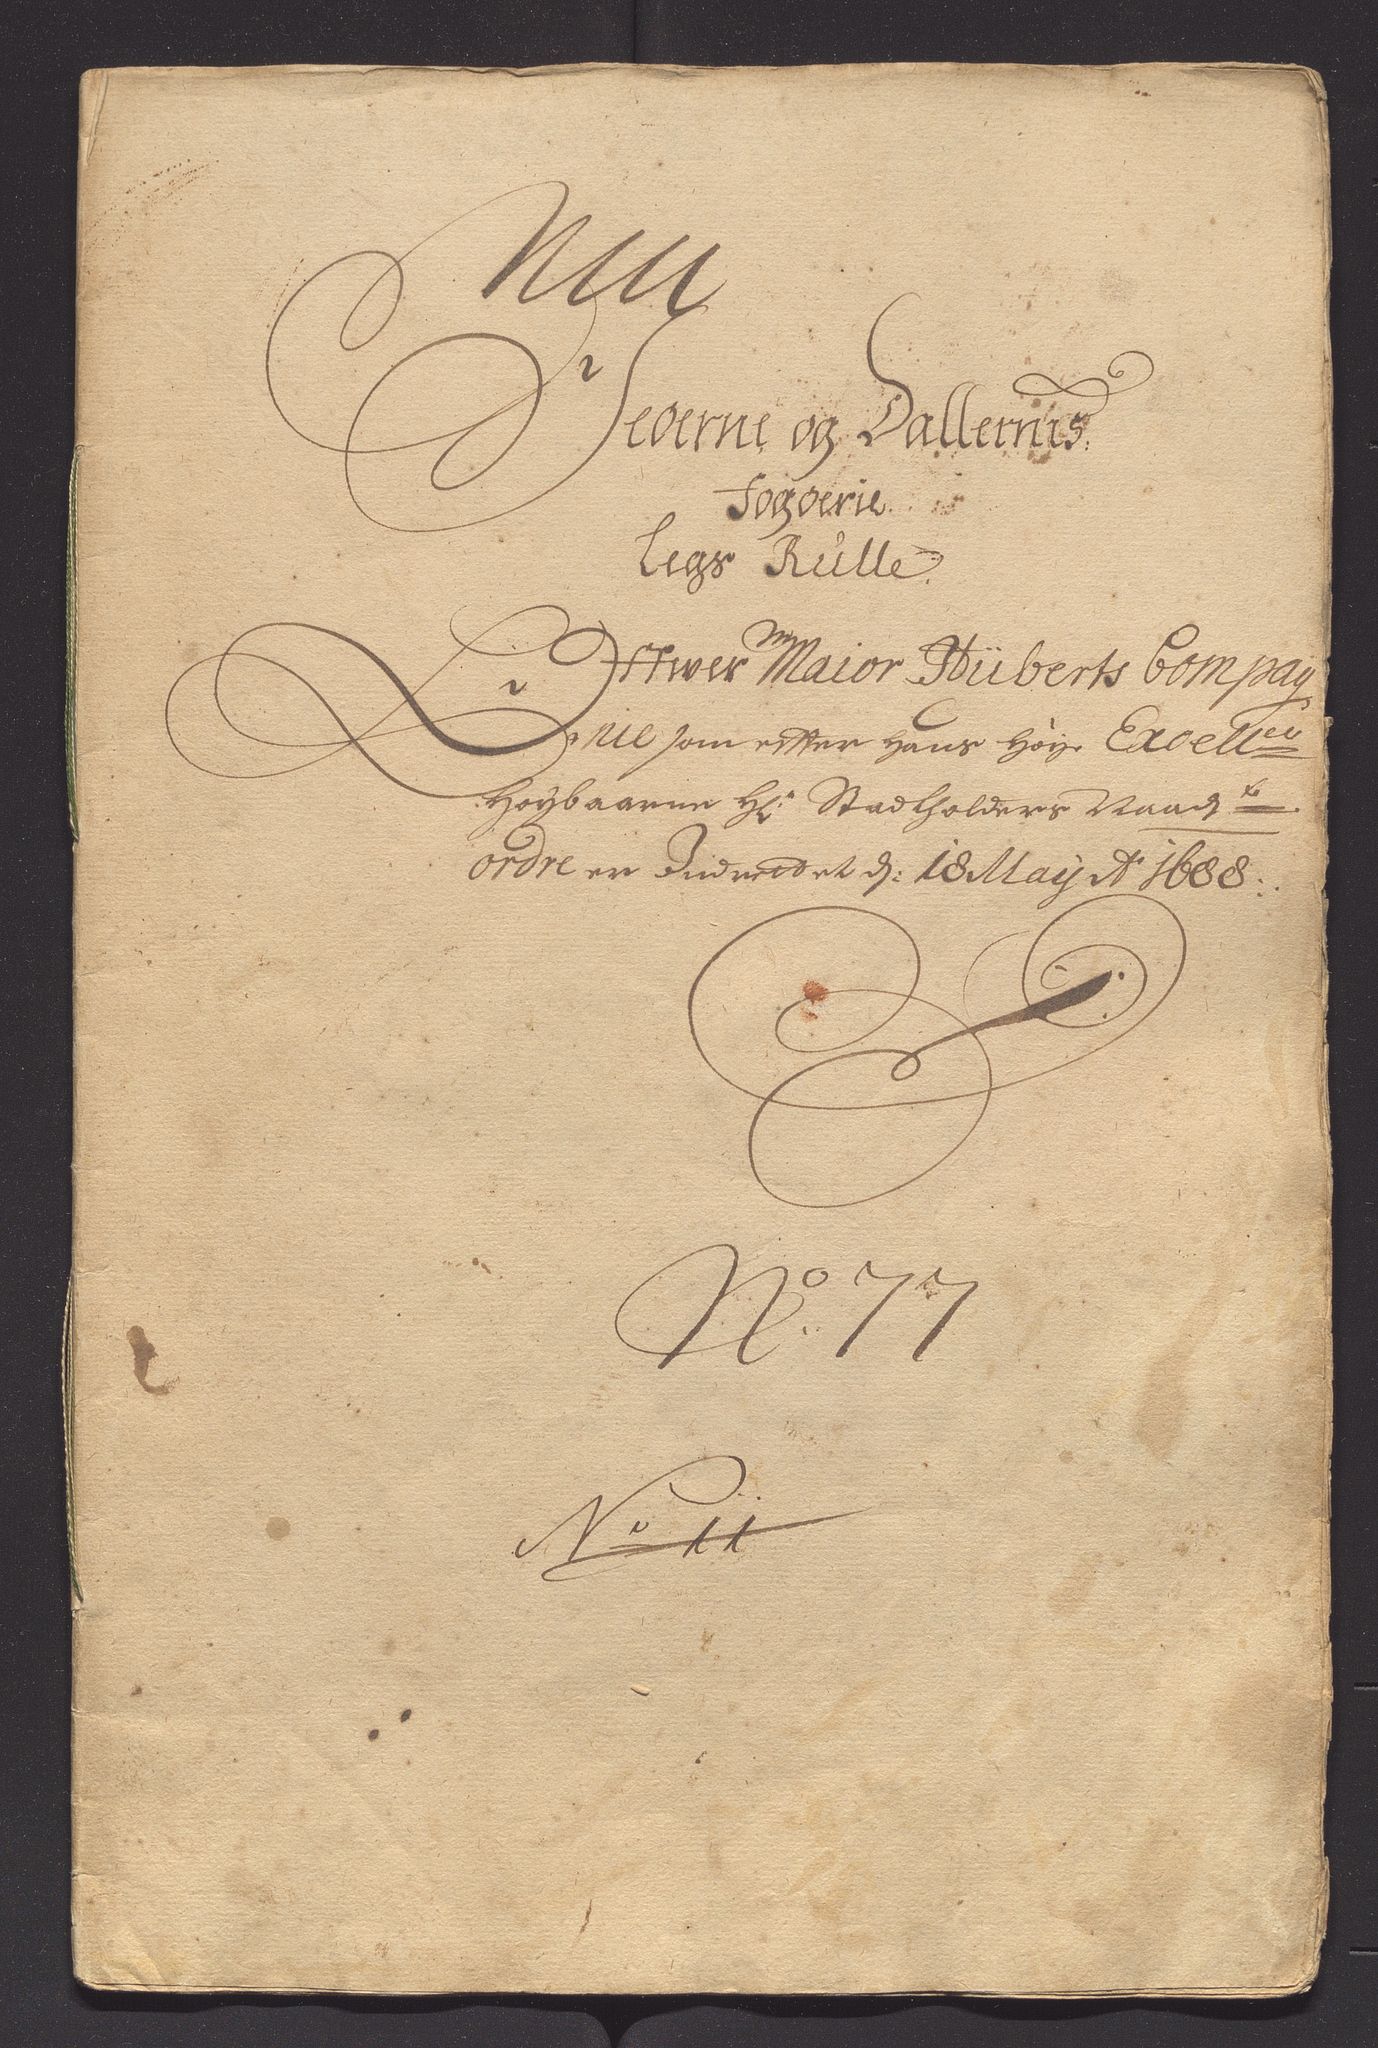 Nu
Jederne og Dallernis
fogderie
Legs Rulle
Offwer Maior Hüberts Compag
nie som effter Hans Höye Excell
Höybaarne Hr: Stadtholders Naad
ordre er Indrettet d: 18 Maij Ao 1688:
No. 77
No 11